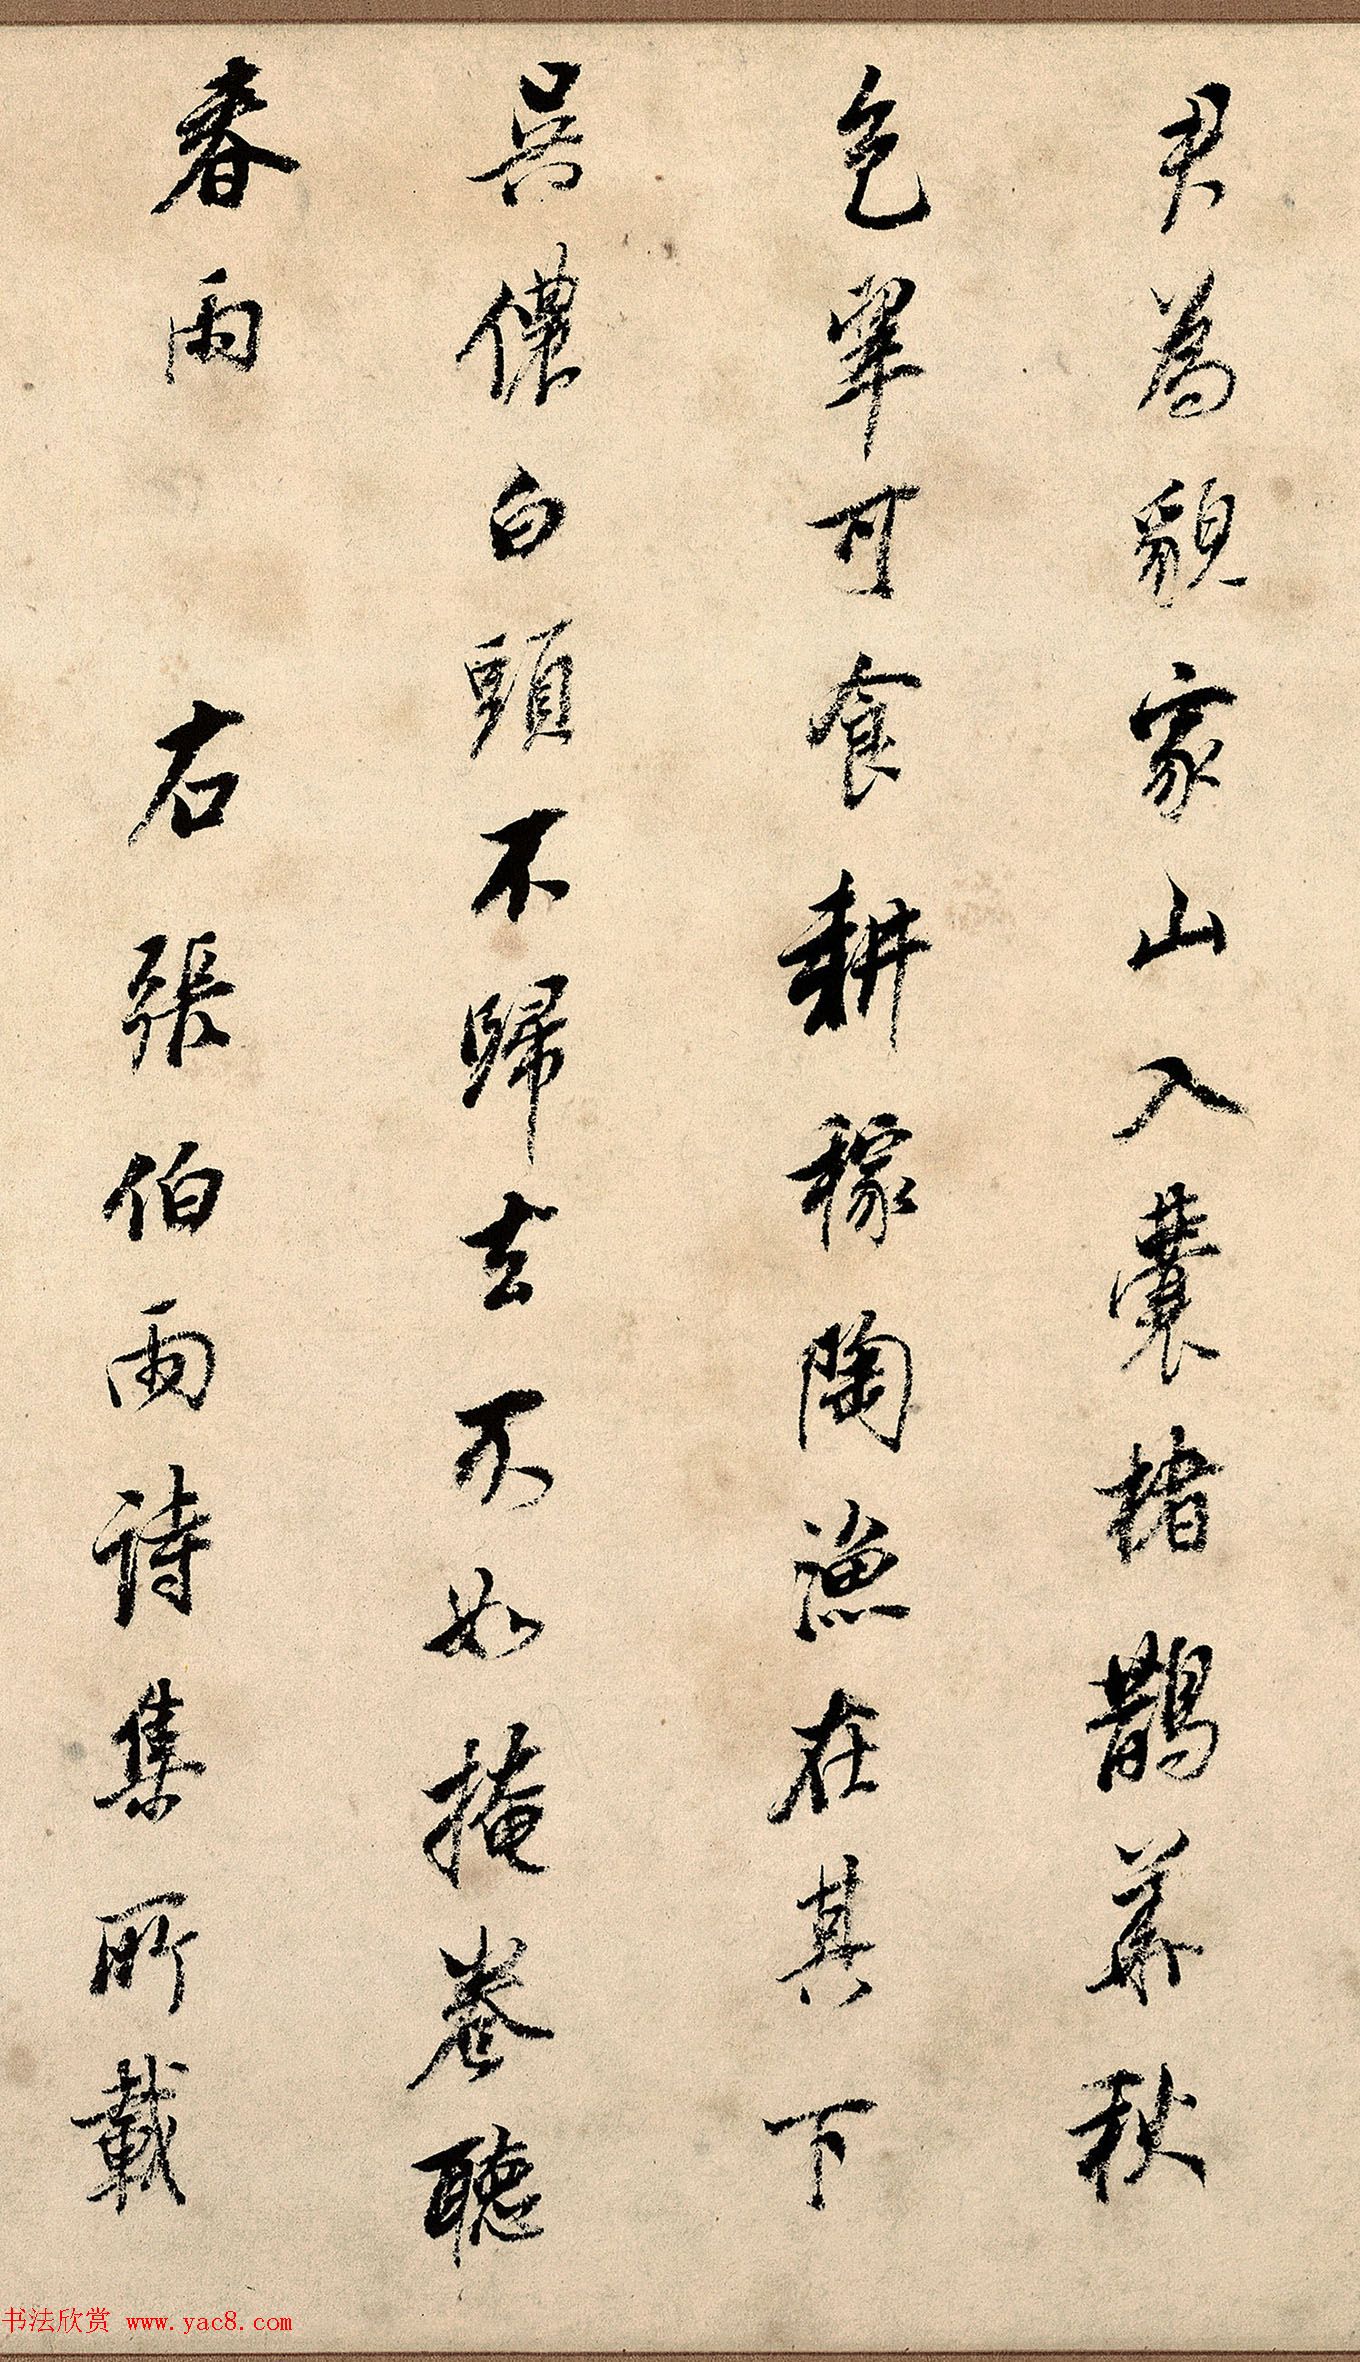 尹為貌家山入囊楮鵲華秋
色翠可食耕稼陶漁在其下
吳儂白頭不歸去不如掩卷聽
春雨　右張伯雨詩集所載
书法欣赏 www.yac8.com